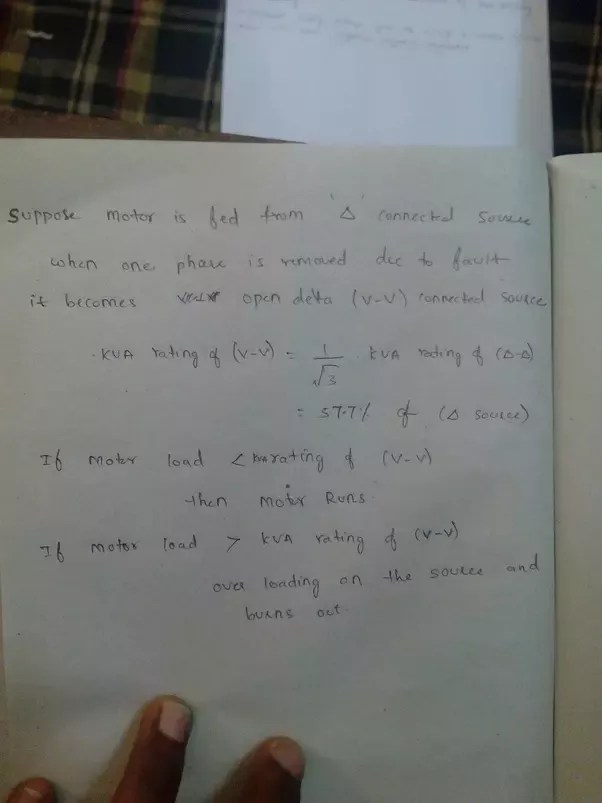 Suppose motor is fed from 'Δ' connected source
when one phase is removed due to fault
it becomes open delta (V-V) connected source
KVA rating of (V-V) = 1/√3 KVA rating of (Δ-Δ)
= 57.7% of (Δ source)
If motor load < KVA rating of (V-V)
then motor Runs.
If motor load > KVA rating of (V-V)
over loading on the source and
burns out.